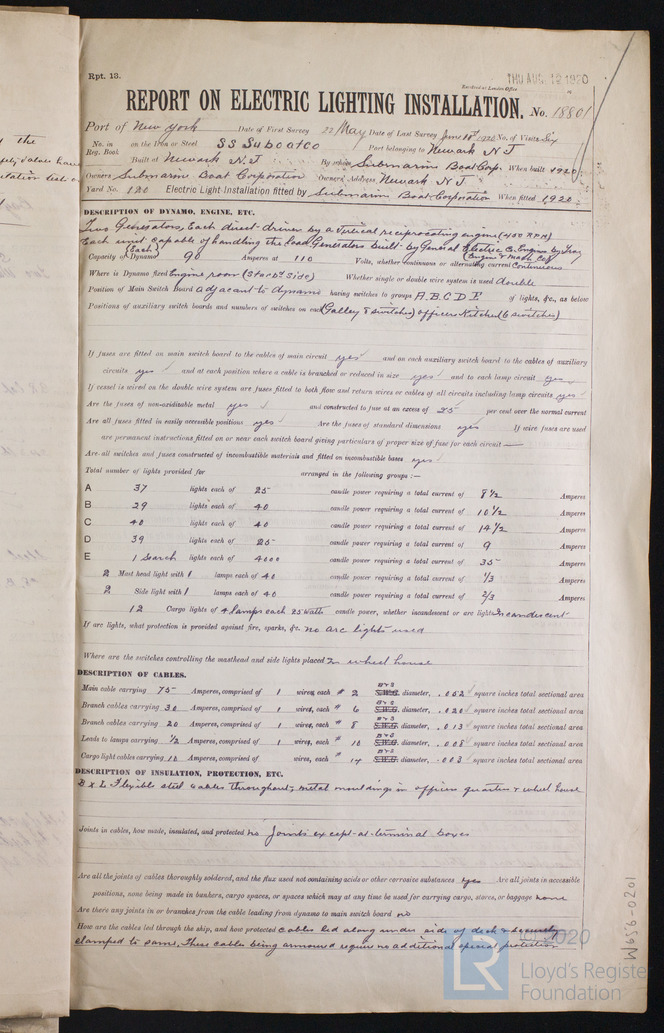 Rpt. 13.
THU AUG. 12 1920
Received at London Office
REPORT ON ELECTRIC LIGHTING INSTALLATION. No. 18801
Port of New York Date of First Survey 22 May Date of Last Survey June 18th 1920 No. of Visits Six
No. in Reg. Book on the Iron or Steel SS Suboatco Port belonging to Newark N J
Built at Newark N.J. By whom Submarine Boat Corp. When built 1920
Owners Submarine Boat Corporation Owners' Address Newark N J
Yard No. 120 Electric Light Installation fitted by Submarine Boat Corporation When fitted 1920
DESCRIPTION OF DYNAMO, ENGINE, ETC.
Two Generators, Each direct driven by a vertical reciprocating engine (400 RPM)
Each unit capable of handling the load Generators built by General Electric Co Engine by Troy
Engine & Mach Co
Capacity of Dynamo (Each) 90 Amperes at 110 Volts, whether continuous or alternating current Continuous
Where is Dynamo fixed Engine room (Starbd side) Whether single or double wire system is used double
Position of Main Switch Board adjacent to dynamo having switches to groups A, B, C D E of lights, &c., as below
Positions of auxiliary switch boards and numbers of switches on each (Galley 8 switches) officers Kitchen (6 switches)
If fuses are fitted on main switch board to the cables of main circuit yes and on each auxiliary switch board to the cables of auxiliary
circuits yes and at each position where a cable is branched or reduced in size yes and to each lamp circuit yes
If vessel is wired on the double wire system are fuses fitted to both flow and return wires or cables of all circuits including lamp circuits yes
Are the fuses of non-oxidizable metal yes and constructed to fuse at an excess of 25 per cent over the normal current
Are all fuses fitted in easily accessible positions yes Are the fuses of standard dimensions yes If wire fuses are used
are permanent instructions fitted on or near each switch board giving particulars of proper size of fuse for each circuit —
Are all switches and fuses constructed of incombustible materials and fitted on incombustible bases yes
Total number of lights provided for arranged in the following groups :—
A 37 lights each of 25 candle power requiring a total current of 8 1/2 Amperes
B 29 lights each of 40 candle power requiring a total current of 10 1/2 Amperes
C 40 lights each of 40 candle power requiring a total current of 14 1/2 Amperes
D 39 lights each of 25 candle power requiring a total current of 9 Amperes
E 1 Search lights each of 4000 candle power requiring a total current of 35 Amperes
2 Mast head light with 1 lamps each of 40 candle power requiring a total current of 1/3 Amperes
2 Side light with 1 lamps each of 40 candle power requiring a total current of 2/3 Amperes
12 Cargo lights of 4 lamps each 25 watts candle power, whether incandescent or arc lights Incandescent
If arc lights, what protection is provided against fire, sparks, &c. no arc lights used
Where are the switches controlling the masthead and side lights placed In wheel house
DESCRIPTION OF CABLES.
Main cable carrying 75 Amperes, comprised of 1 wires, each # 2 B&S S.W.G. diameter, .052 square inches total sectional area
Branch cables carrying 30 Amperes, comprised of 1 wires, each # 6 B&S S.W.G. diameter, .020 square inches total sectional area
Branch cables carrying 20 Amperes, comprised of 1 wires, each # 8 B&S S.W.G. diameter, .013 square inches total sectional area
Leads to lamps carrying 1/2 Amperes, comprised of 1 wires, each # 10 B&S S.W.G. diameter, .008 square inches total sectional area
Cargo light cables carrying 10 Amperes, comprised of wires, each # 14 B&S S.W.G. diameter, .003 square inches total sectional area
DESCRIPTION OF INSULATION, PROTECTION, ETC.
B x L Flexible steel cables throughout, metal mouldings in officers quarters & wheel house
Joints in cables, how made, insulated, and protected no Joints except at terminal boxes
Are all the joints of cables thoroughly soldered, and the flux used not containing acids or other corrosive substances yes Are all joints in accessible
positions, none being made in bunkers, cargo spaces, or spaces which may at any time be used for carrying cargo, stores, or baggage none
Are there any joints in or branches from the cable leading from dynamo to main switch board no
How are the cables led through the ship, and how protected cables led along under side of deck & securely
clamped to same, These cables being armoured require no additional special protection
© 2020
LR
Lloyd's Register
Foundation
W656-0201